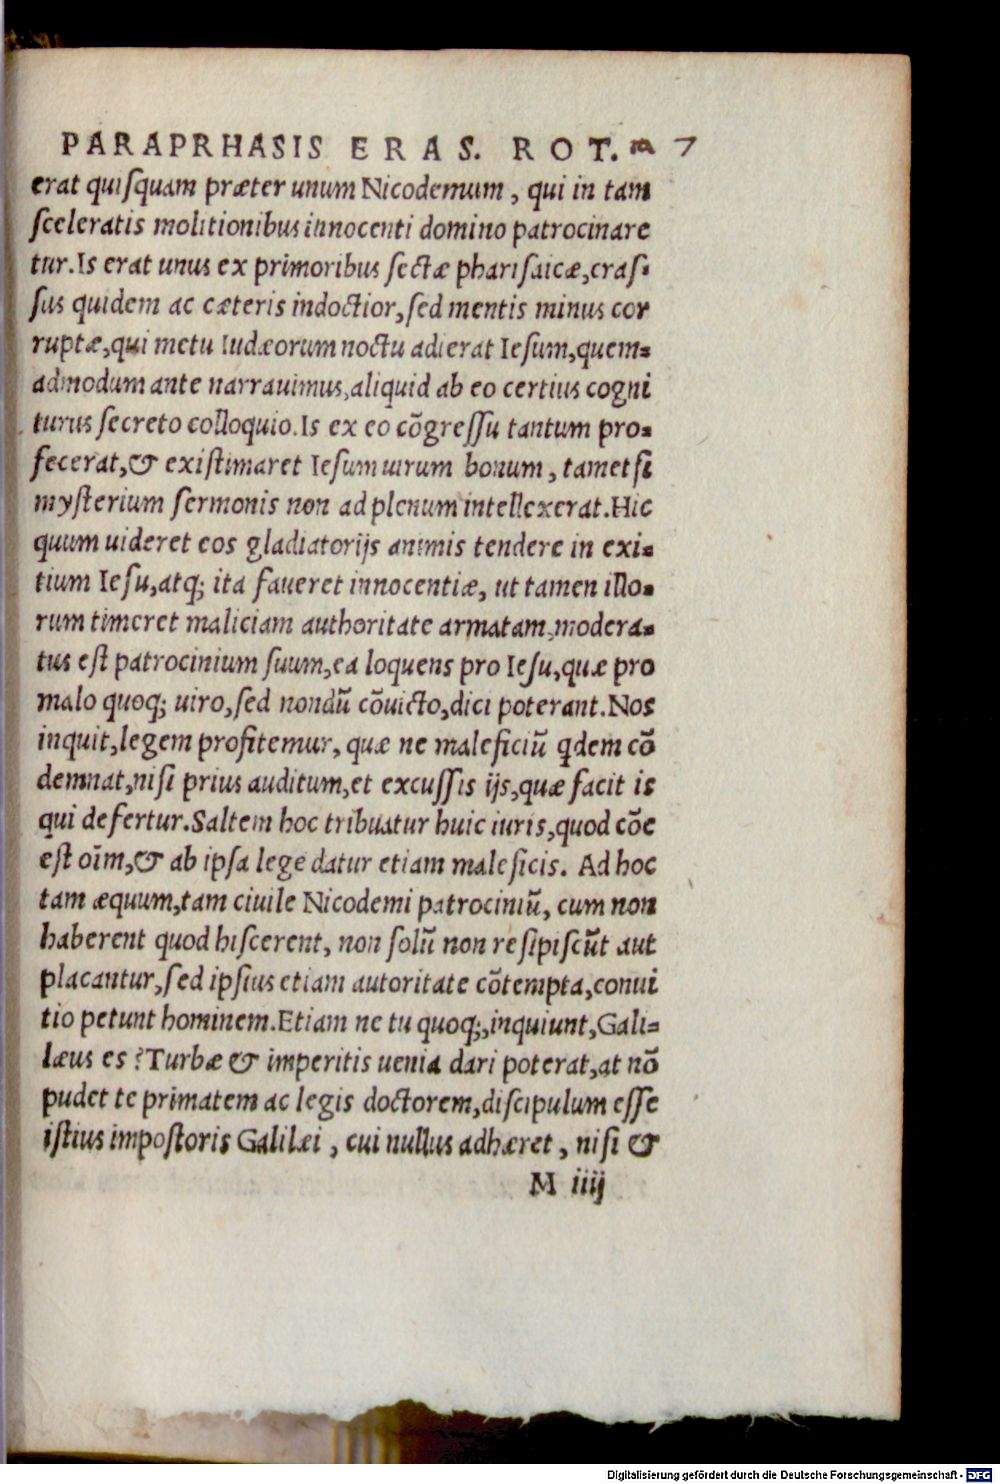 PARAPRHASIS ERAS. ROT. 7
erat quisquam præter unum Nicodemum, qui in tam
sceleratis molitionibus innocenti domino patrocinare
tur. Is erat unus ex primoribus sectæ pharisaicæ, cras-
sus quidem ac cæteris indoctior, sed mentis minus cor
ruptæ, qui metu Iudæorum noctu adierat Iesum, quem-
admodum ante narrauimus, aliquid ab eo certius cogni
turus secreto colloquio. Is ex eo cõgressu tantum pro-
fecerat, & existimaret Iesum uirum bonum, tametsi
mysterium sermonis non ad plenum intellexerat. Hic
quum uideret eos gladiatorijs animis tendere in exi-
tium Iesu, atq; ita faueret innocentiæ, ut tamen illo-
rum timeret maliciam authoritate armatam, modera-
tus est patrocinium suum, ea loquens pro Iesu, quæ pro
malo quoq; uiro, sed nondũ cõuicto, dici poterant. Nos
inquit, legem profitemur, quæ ne maleficiũ qdem cõ
demnat, nisi prius auditum, et excussis ijs, quæ facit is
qui defertur. Saltem hoc tribuatur huic iuris, quod cõe
est oĩm, & ab ipsa lege datur etiam maleficis. Ad hoc
tam æquum, tam ciuile Nicodemi patrociniũ, cum non
haberent quod hiscerent, non solũ non resipiscũt aut
placantur, sed ipsius etiam autoritate cõtempta, conui
tio petunt hominem. Etiam ne tu quoq;, inquiunt, Gali-
læus es? Turbæ & imperitis uenia dari poterat, at nõ
pudet te primatem ac legis doctorem, discipulum esse
istius impostoris Galilæi, cui nullus adhæret, nisi &
M iiij
Digitalisierung gefördert durch die Deutsche Forschungsgemeinschaft - DFG